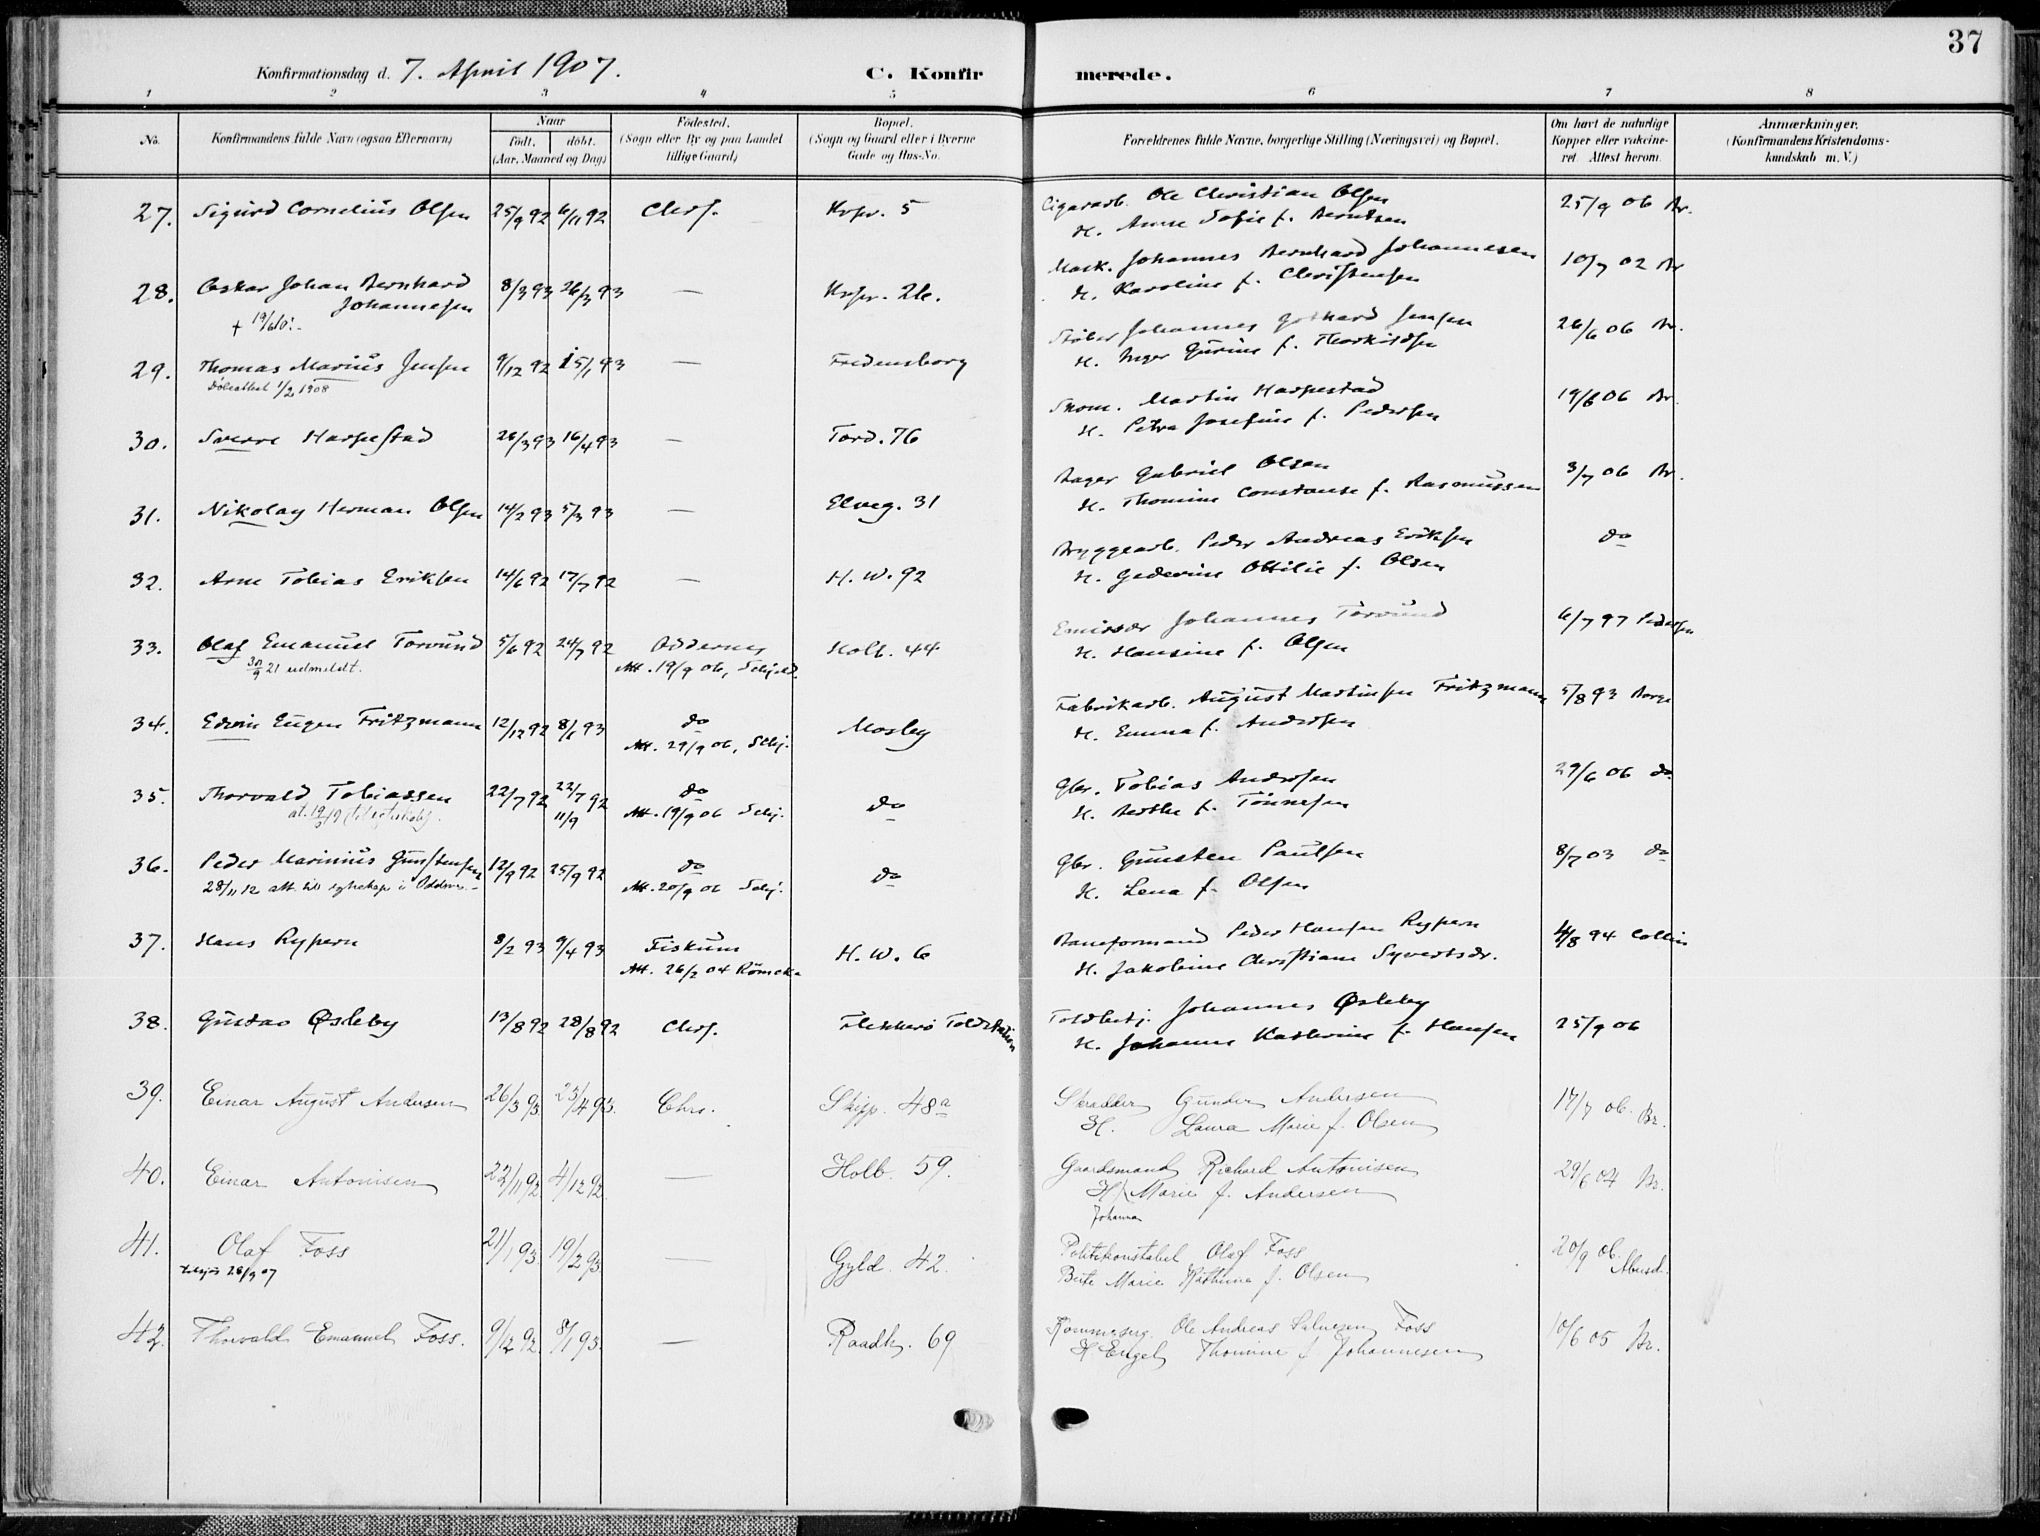 37
Konfirmationsdag d. 7. April 1907.
C. Konfirmerede.
1 2 3 4 5 6 7 8
No.
Konfirmandens fulde Navn (ogsaa Efternavn)
Naar
født. døbt.
(Aar, Maaned og Dag)
Fødested.
(Sogn eller By og paa Landet
tillige Gaard)
Bopæl.
(Sogn og Gaard eller i Byerne
Gade og Hus-No.
Forældrenes fulde Navne, borgerlige Stilling (Næringsvei) og Bopæl.
Om havt de naturlige
Kopper eller vakcine-
ret. Attest herom.
Anmærkninger.
(Konfirmandens Kristendoms-
kundskab m. V.)
27. Sigurd Cornelius Olsen 25/9 92 6/11 92 Chrs. Krspr. 5 Cigararb. Ole Christian Olsen 25/9 06 Br.
H. Anne Sofie f. Berntsen
28. Oskar Johan Bernhard 8/3 93 26/3 93 — Krspr. 26. Mask. Johannes Bernhard Johannesen 10/7 02 Br
Johannesen H. Karoline f. Christensen
29. Thomas Marius Jensen 9/12 92 15/1 93 — Fredensborg Støber Johannes Gothard Jensen 26/6 06 Br.
Döbeattest 1/2 1908 H. Inger Gurine f. Thorkildsen
30. Sverre Harpestad 26/3 93 16/4 93 — Tord. 76 Skom. Martin Harpestad 19/6 06 Br.
H. Petra Josefine f. Pedersen
31. Nikolay Herman Olsen 14/2 93 5/3 93 — Elveg. 31 Bager Gabriel Olsen 3/7 06 Br.
H. Thomine Constanse f. Rasmussen
32. Arne Tobias Eriksen 14/6 92 17/7 92 — H. W. 92 Bryggearb. Peder Andreas Eriksen do
H. Gederine Ottilie f. Olsen
33. Olaf Emanuel Torvund 5/6 92 24/7 92 Oddernes Holb. 44 Emissær Johannes Torvund 6/7 97 Pedersen
30/9 21 udmeldt. Att. 19/9 06, Schjeld. H. Hansine f. Olsen
34. Edvin Eugen Fritzmann 12/12 92 8/1 93 do Mosby Fabrikarb. August Martinsen Fritzmann 5/8 93 Borge
Att. 29/9 06, Schj. H. Emma f. Andersen
35. Thorvald Tobiassen 22/7 92 22/7 92 do do Gbr. Tobias Andersen 29/6 06 do
11/9 Att. 19/9 06 Schj. H. Berthe f. Tönnesen
36. Peder Marinius Gunstensen 12/9 92 25/9 92 do do Gbr. Gunsten Paulsen 8/7 03 do
28/11 12 att. til egteskap i Oddernes Att. 20/9 06 Schj. H. Lena f. Olsen
37. Hans Rypern 8/2 93 9/4 93 Fiskum H. W. 6 Baneformand Peder Hansen Rypern 4/8 94 Collin
Att. 26/2 04 Römcke H. Jakobine Christiane Syvertsdr.
38. Gustav Øsleby 13/8 92 28/8 92 Chrs. Flekkerö Toldstation Toldbetj. Johannes Øsleby 25/9 06
H. Johanne Kathrine f. Hansen
39. Einar August Andersen 26/3 93. 23/4 93. Chrs. Skipp. 48a Skrædder Gunder Andersen 17/7 06. Br.
H. Laura Marie f. Olsen
40. Einar Antonisen 22/11 92. 4/12 92. — Holb. 59. Gaardsmand Richard Antonisen 29/6 04 Br.
H. Marie f. Andersen
Johanna
41. Olaf Foss 21/1 93. 19/2 93. — Gyld. 42. Politikonstabel Olaf Foss 20/9 06.
28/9 07 Berte Marie Kathrine f. Olsen
42. Thorvald Emanuel Foss. 9/12 92. 8/1 93. — Raadh. 69 Ole Andreas Salvesen Foss 10/6 05 Br.
H. Engel Thomine f. Johannesen